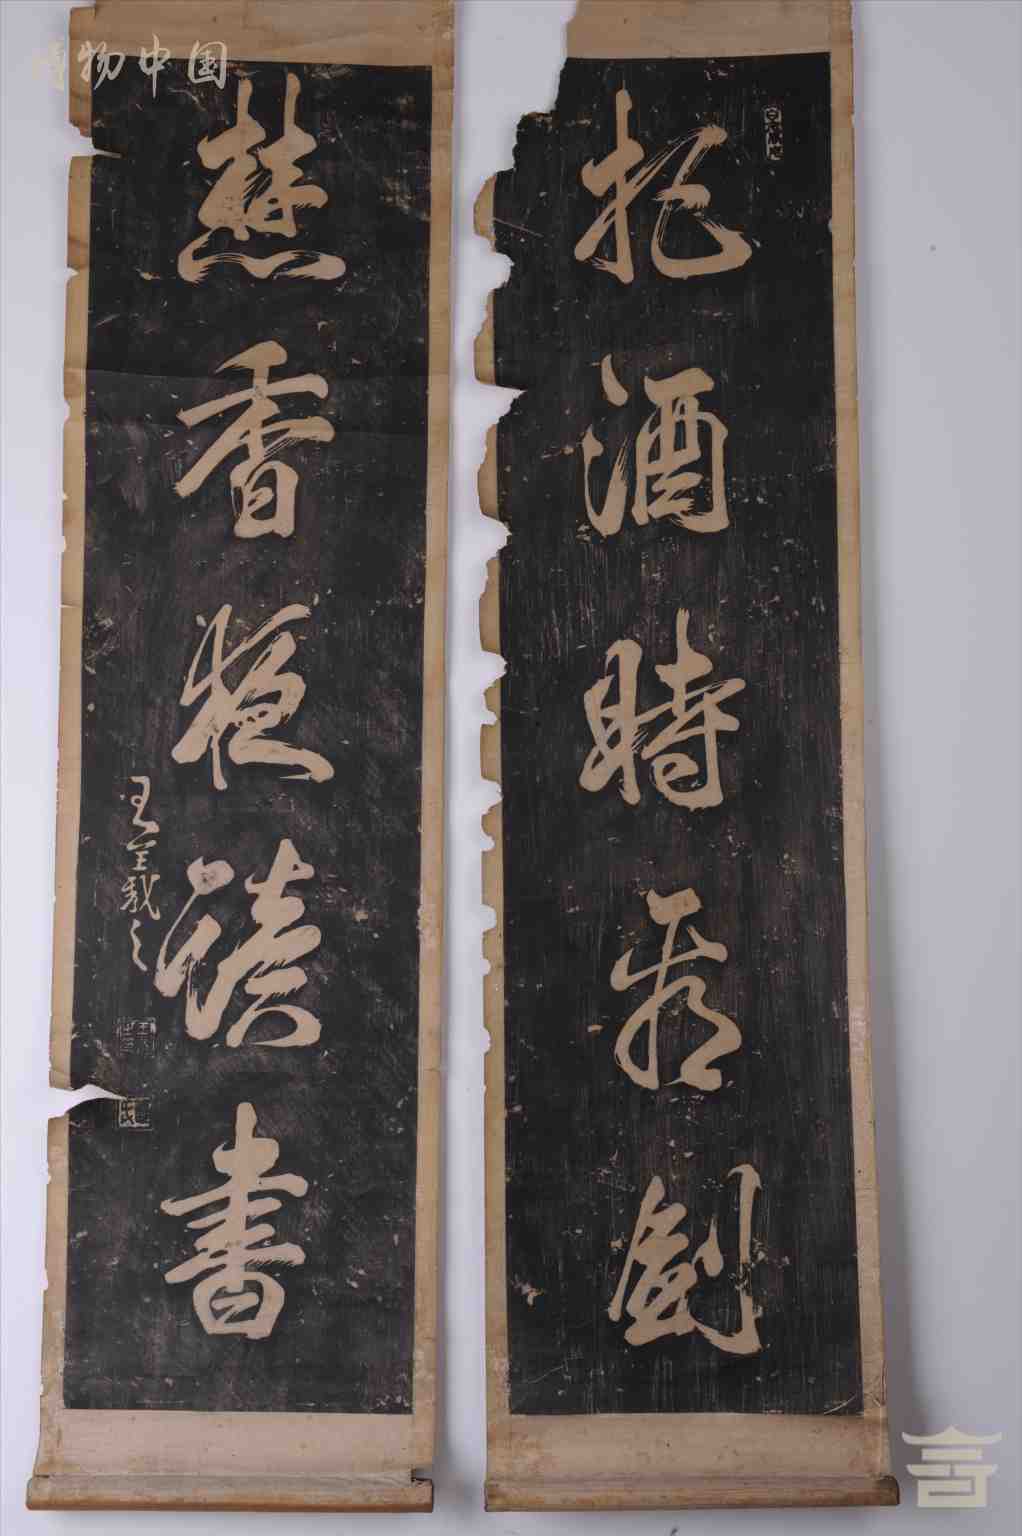 把酒時看劍
焚香夜讀書
王羲之
博物中国